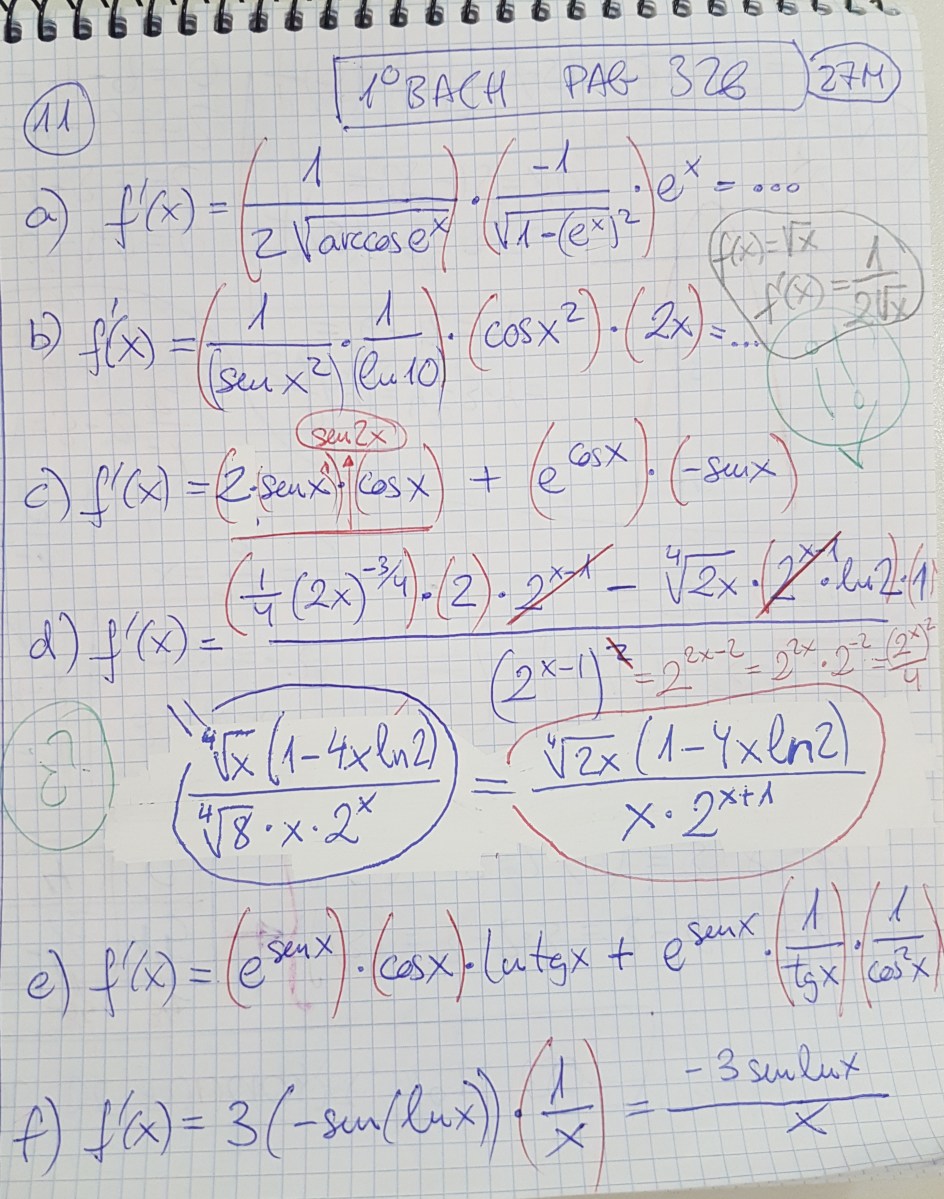 1º BACH PAG 328 27M
11
a) f'(x) = (1 / (2√(arccos e^x))) · (-1 / √(1-(e^x)^2)) · e^x = ...
f(x) = √x
f'(x) = 1 / (2√x)
b) f'(x) = (1 / (sen x^2) · 1 / (ln 10)) · (cos x^2) · (2x) = ...
!!
sen 2x
c) f'(x) = (2 · (sen x) · (cos x)) + (e^(cos x)) · (-sen x)
d) f'(x) = ((1/4 (2x)^(-3/4)) · (2) · 2^(x-1) - ⁴√(2x) · (2^(x-1) · ln 2) · (1 / (2^(x-1))^2 = 2^(2x-2) = 2^(2x) · 2^(-2) = (2^x)^2 / 4
(⁴√x (1-4x ln 2)) / (⁴√8 · x · 2^x) = (⁴√(2x) (1-4x ln 2)) / (x · 2^(x+1))
e) f'(x) = (e^(sen x)) · (cos x) · ln tg x + e^(sen x) · (1 / tg x) · (1 / cos^2 x)
f) f'(x) = 3 (-sen (ln x)) · (1 / x) = (-3 sen ln x) / x